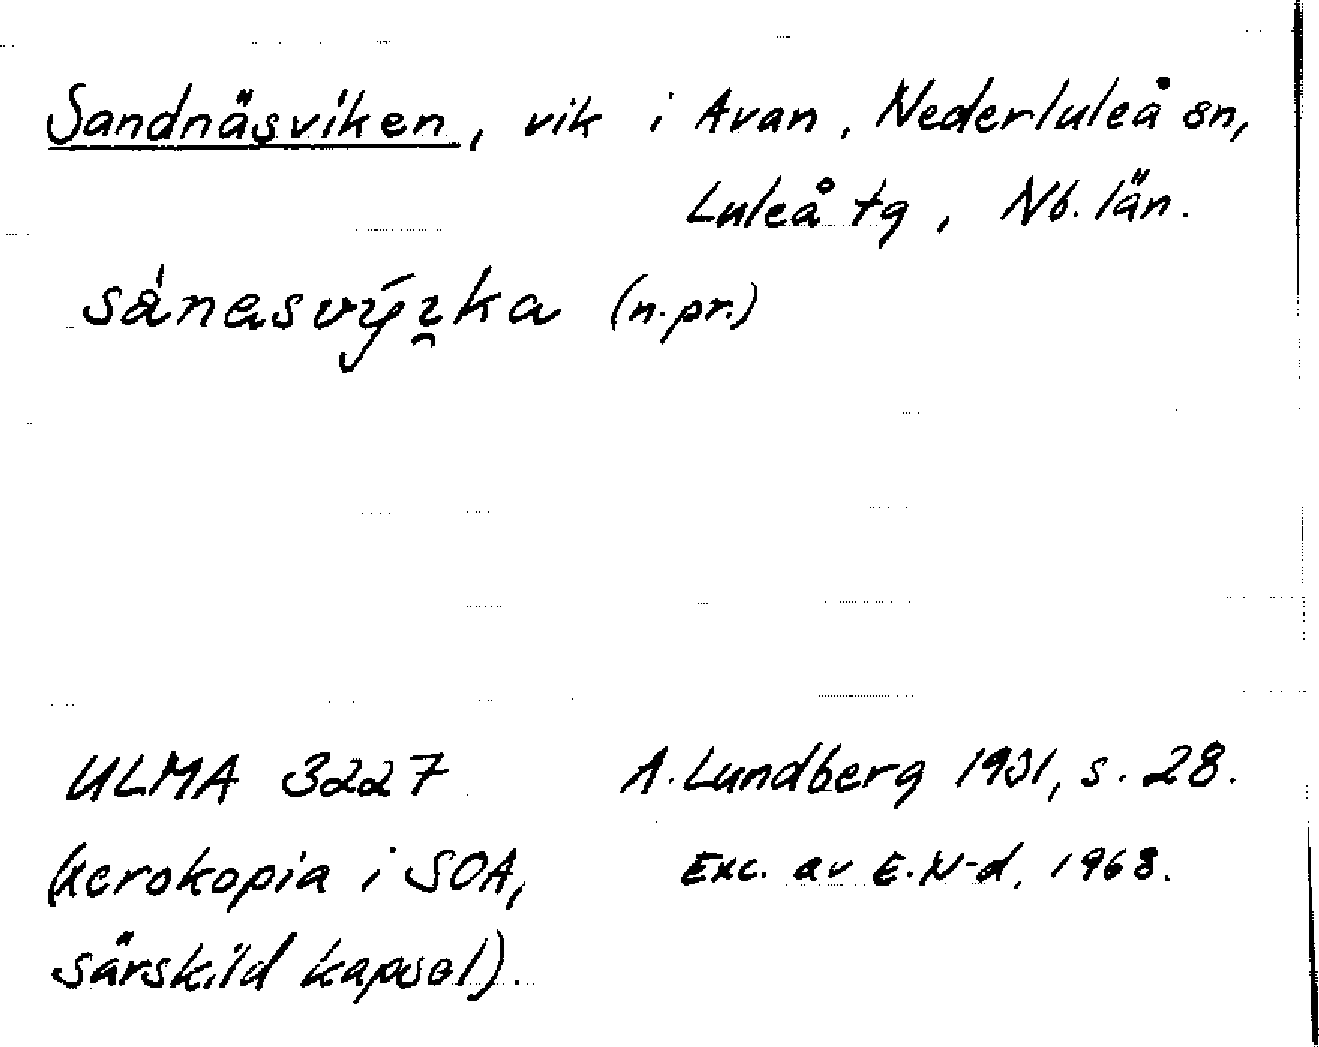 Sandnäsviken, vik i Avan, Nederluleå sn,
Luleå tg, Nb. län.
(n.pr.)
ULMA 3227 A. Lundberg 1931, s. 28.
(Xerokopia i SOA, Exc. av E.N-d, 1968.
särskild kapsel).